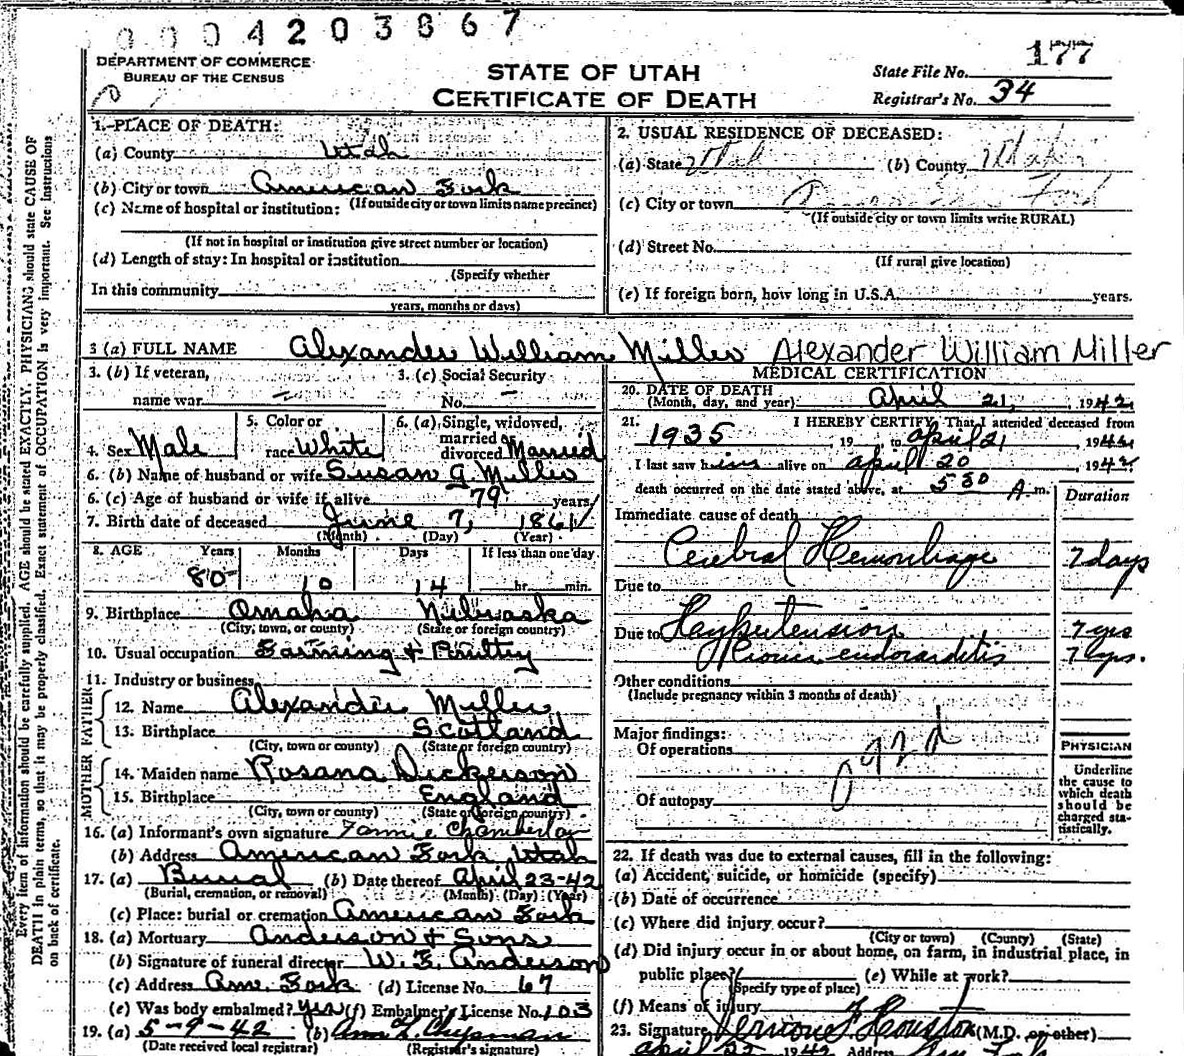 0004203867
DEPARTMENT OF COMMERCE
BUREAU OF THE CENSUS
STATE OF UTAH
CERTIFICATE OF DEATH
State File No. 177
Registrar's No. 34
1. PLACE OF DEATH:
(a) County Utah
(b) City or town American Fork
(If outside city or town limits name precinct)
(c) Name of hospital or institution:
(If not in hospital or institution give street number or location)
(d) Length of stay: In hospital or institution
(Specify whether
In this community
years, months or days)
2. USUAL RESIDENCE OF DECEASED:
(a) State Utah (b) County Utah
(c) City or town
(If outside city or town limits write RURAL)
(d) Street No.
(If rural give location)
(e) If foreign born, how long in U.S.A. years.
3 (a) FULL NAME Alexander William Miller Alexander William Miller
3. (b) If veteran,
name war –
3. (c) Social Security
No. –
4. Sex Male
5. Color or
race White
6. (a) Single, widowed,
married or
divorced Married
6. (b) Name of husband or wife Susan G. Miller
6. (c) Age of husband or wife if alive 79 years
7. Birth date of deceased June 7, 1861
(Month) (Day) (Year)
8. AGE Years Months Days If less than one day
80 10 14 hr. min.
9. Birthplace Omaha Nebraska
(City, town, or county) (State or foreign country)
10. Usual occupation Farming & Poultry
11. Industry or business
FATHER
12. Name Alexander Miller
13. Birthplace Scotland
(City, town or county) (State or foreign country)
MOTHER
14. Maiden name Rosana Dickerson
15. Birthplace England
(City, town or county) (State or foreign country)
16. (a) Informant's own signature Fannie Chamberlain
(b) Address American Fork Utah
17. (a) Burial (b) Date thereof April 23-42
(Burial, cremation, or removal) (Month) (Day) (Year)
(c) Place: burial or cremation American Fork
18. (a) Mortuary Anderson & Sons
(b) Signature of funeral director W. E. Anderson
(c) Address Am. Fork (d) License No. 67
(e) Was body embalmed? yes (f) Embalmer's License No. 103
19. (a) 5-9-42 (b)
(Date received local registrar) (Registrar's signature)
MEDICAL CERTIFICATION
20. DATE OF DEATH
(Month, day, and year): April 21, 1942
21. I HEREBY CERTIFY That I attended deceased from
1935, 19 to April 21, 1942
I last saw him alive on April 20, 1942
death occurred on the date stated above, at 5 30 A m.
Duration
Immediate cause of death
Cerebral Hemorrhage 7 days
Due to
Due to Hypertension 7 yrs
endocarditis 7 yrs.
Other conditions
(Include pregnancy within 3 months of death)
Major findings:
Of operations
092d
Of autopsy
PHYSICIAN
Underline
the cause to
which death
should be
charged sta-
tistically.
22. If death was due to external causes, fill in the following:
(a) Accident, suicide, or homicide (specify)
(b) Date of occurrence
(c) Where did injury occur?
(City or town) (County) (State)
(d) Did injury occur in or about home, on farm, in industrial place, in
public place? (e) While at work?
(Specify type of place)
(f) Means of injury
23. Signature Vernone F. Houston (M.D. or other)
April 22 1942 Address Am. Fork
Every item of information should be carefully supplied. AGE should be stated EXACTLY. PHYSICIANS should state CAUSE OF
DEATH in plain terms, so that it may be properly classified. Exact statement of OCCUPATION is very important. See instructions
on back of certificate.